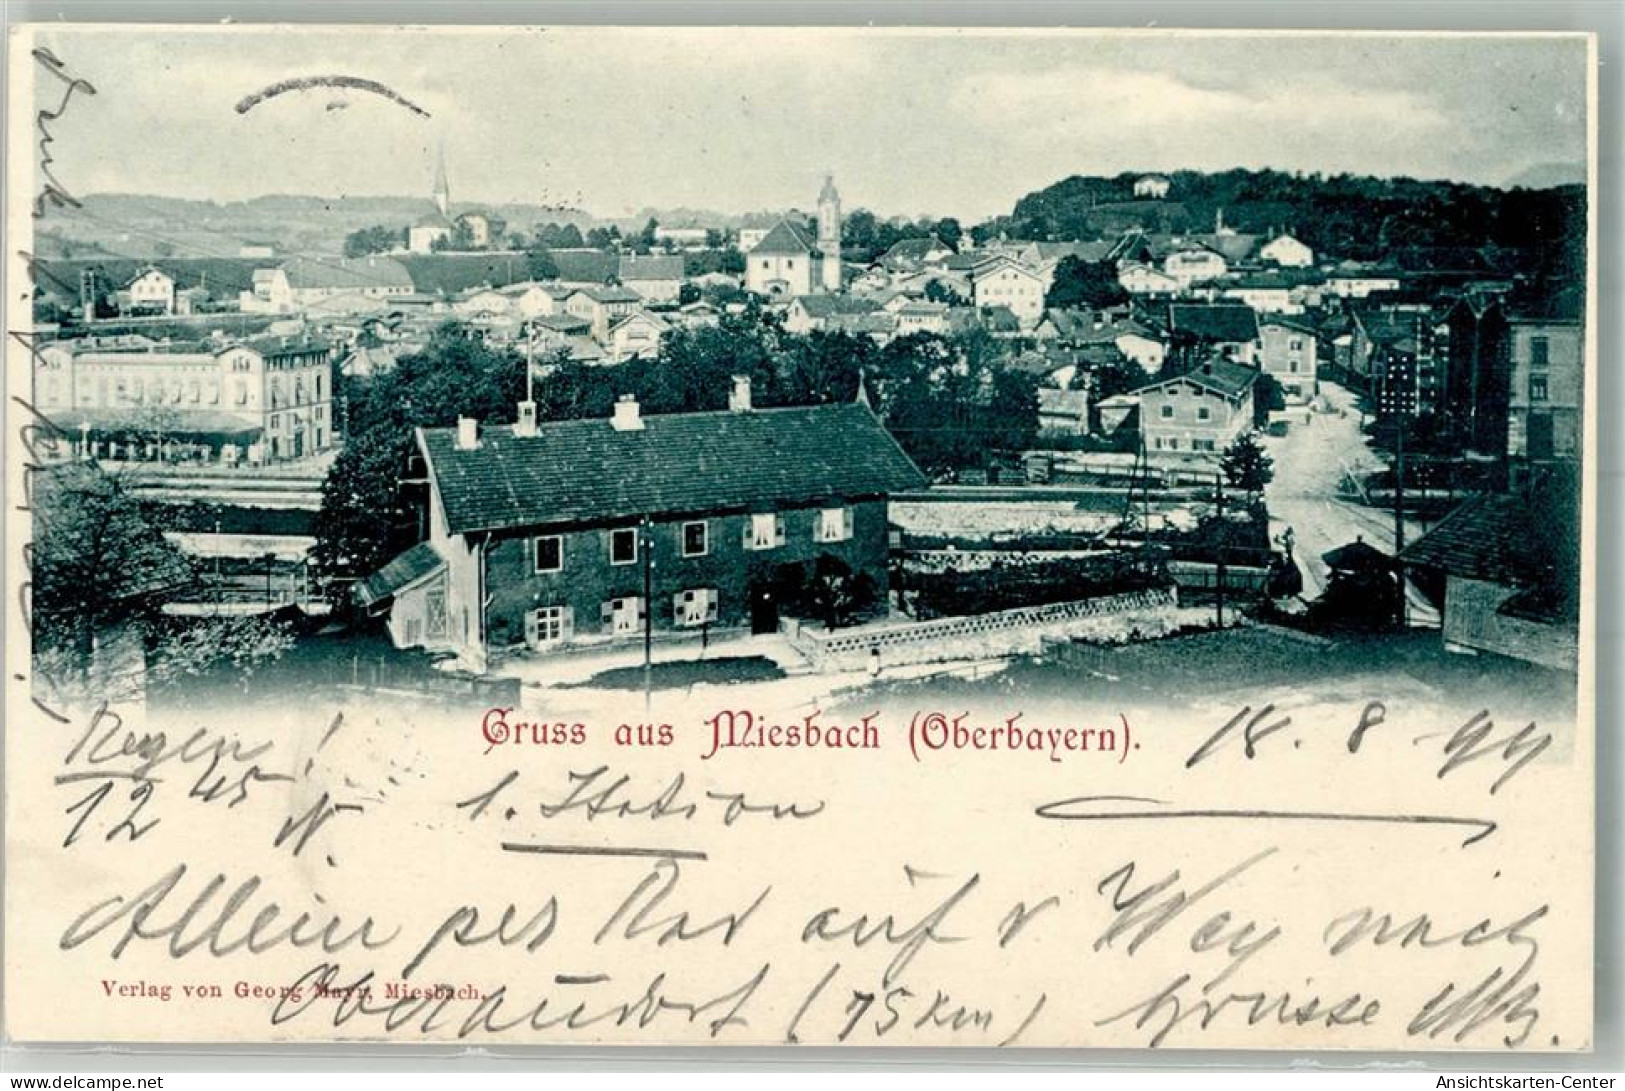 Gruss aus Miesbach (Oberbayern).
18. 8. 99
Regen!
12 45 N.
1. Station
Allein per Rad auf d Weg nach
Oberaudorf (75 km) Grüsse
Verlag von Georg Mayr, Miesbach.
delcampe.net
Ansichtskarten-Center